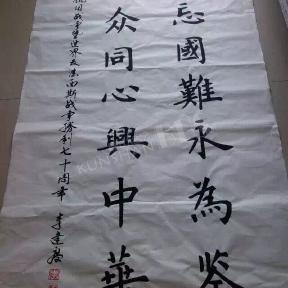 忘國難永為鉴
众同心興中華
抗日战争暨世界反法西斯战争勝利七十周年 李建
KUNSHAN